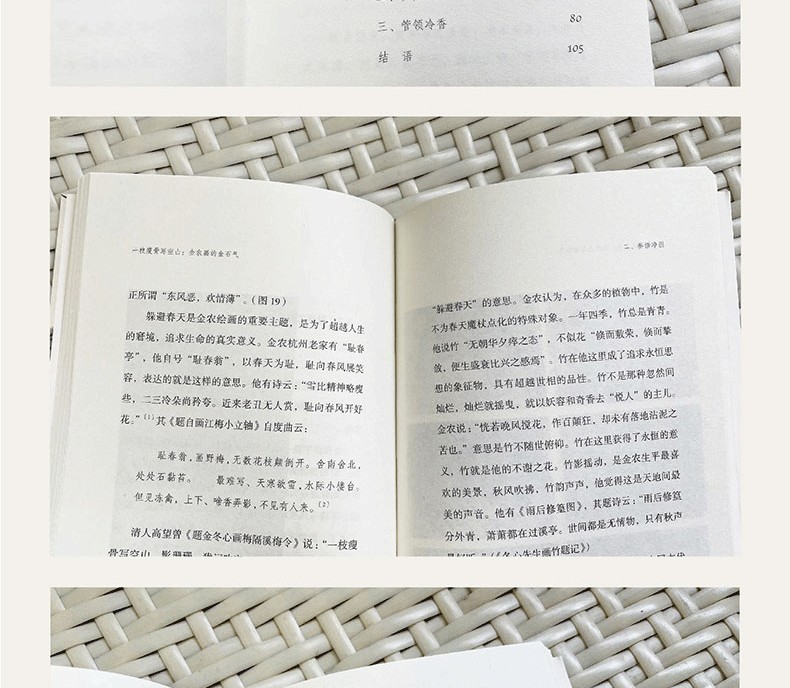 三、管领冷香 80
结 语 105
一枝瘦骨写空山：金农画的金石气
正所谓“东风恶，欢情薄”。（图 19）
躲避春天是金农绘画的重要主题，是为了超越人生
的窘境，追求生命的真实意义。金农杭州老家有“耻春
亭”，他自号“耻春翁”，以春天为耻，耻向春风展笑
容，表达的就是这样的意思。他有诗云：“雪比精神略瘦
些，二三冷朵尚矜夸。近来老丑无人赏，耻向春风开好
花。”[1] 其《题自画江梅小立轴》自度曲云：
耻春翁，画野梅，无数花枝颠倒开。舍南舍北，
处处石黏苔。 最难写、天寒欲雪，水际小楼台。
但见冻禽，上下、啼香弄影，不见有人来。[2]
清人高望曾《题金冬心画梅隔溪梅令》说：“一枝瘦
骨写空山，影珊珊，
二、参悟冷因
“躲避春天”的意思。金农认为，在众多的植物中，竹是
不为春天魔杖点化的特殊对象。一年四季，竹总是青青。
他说竹“无朝华夕瘁之态”，不似花“倏而敷荣，倏而摯
敛，便生盛衰比兴之感焉”。竹在他这里成了追求永恒思
想的象征物，具有超越世相的品性。竹不是那种忽然间
灿烂，灿烂就摇曳，就以妖容和奇香去“悦人”的主儿。
金农说：“恍若晚风搅花，作百颠狂，却未有落地沾泥之
苦也。”意思是竹不随世俯仰。竹在这里获得了永恒的意
义，竹就是他的不谢之花。竹影摇动，是金农生平最喜
欢的美景，秋风吹拂，竹韵声声，他觉得这是天地间最
美的声音。他有《雨后修篁图》，其题诗云：“雨后修篁
分外青，萧萧都在过溪亭。世间都是无情物，只有秋声
最好听。”（《冬心先生画竹题记》）